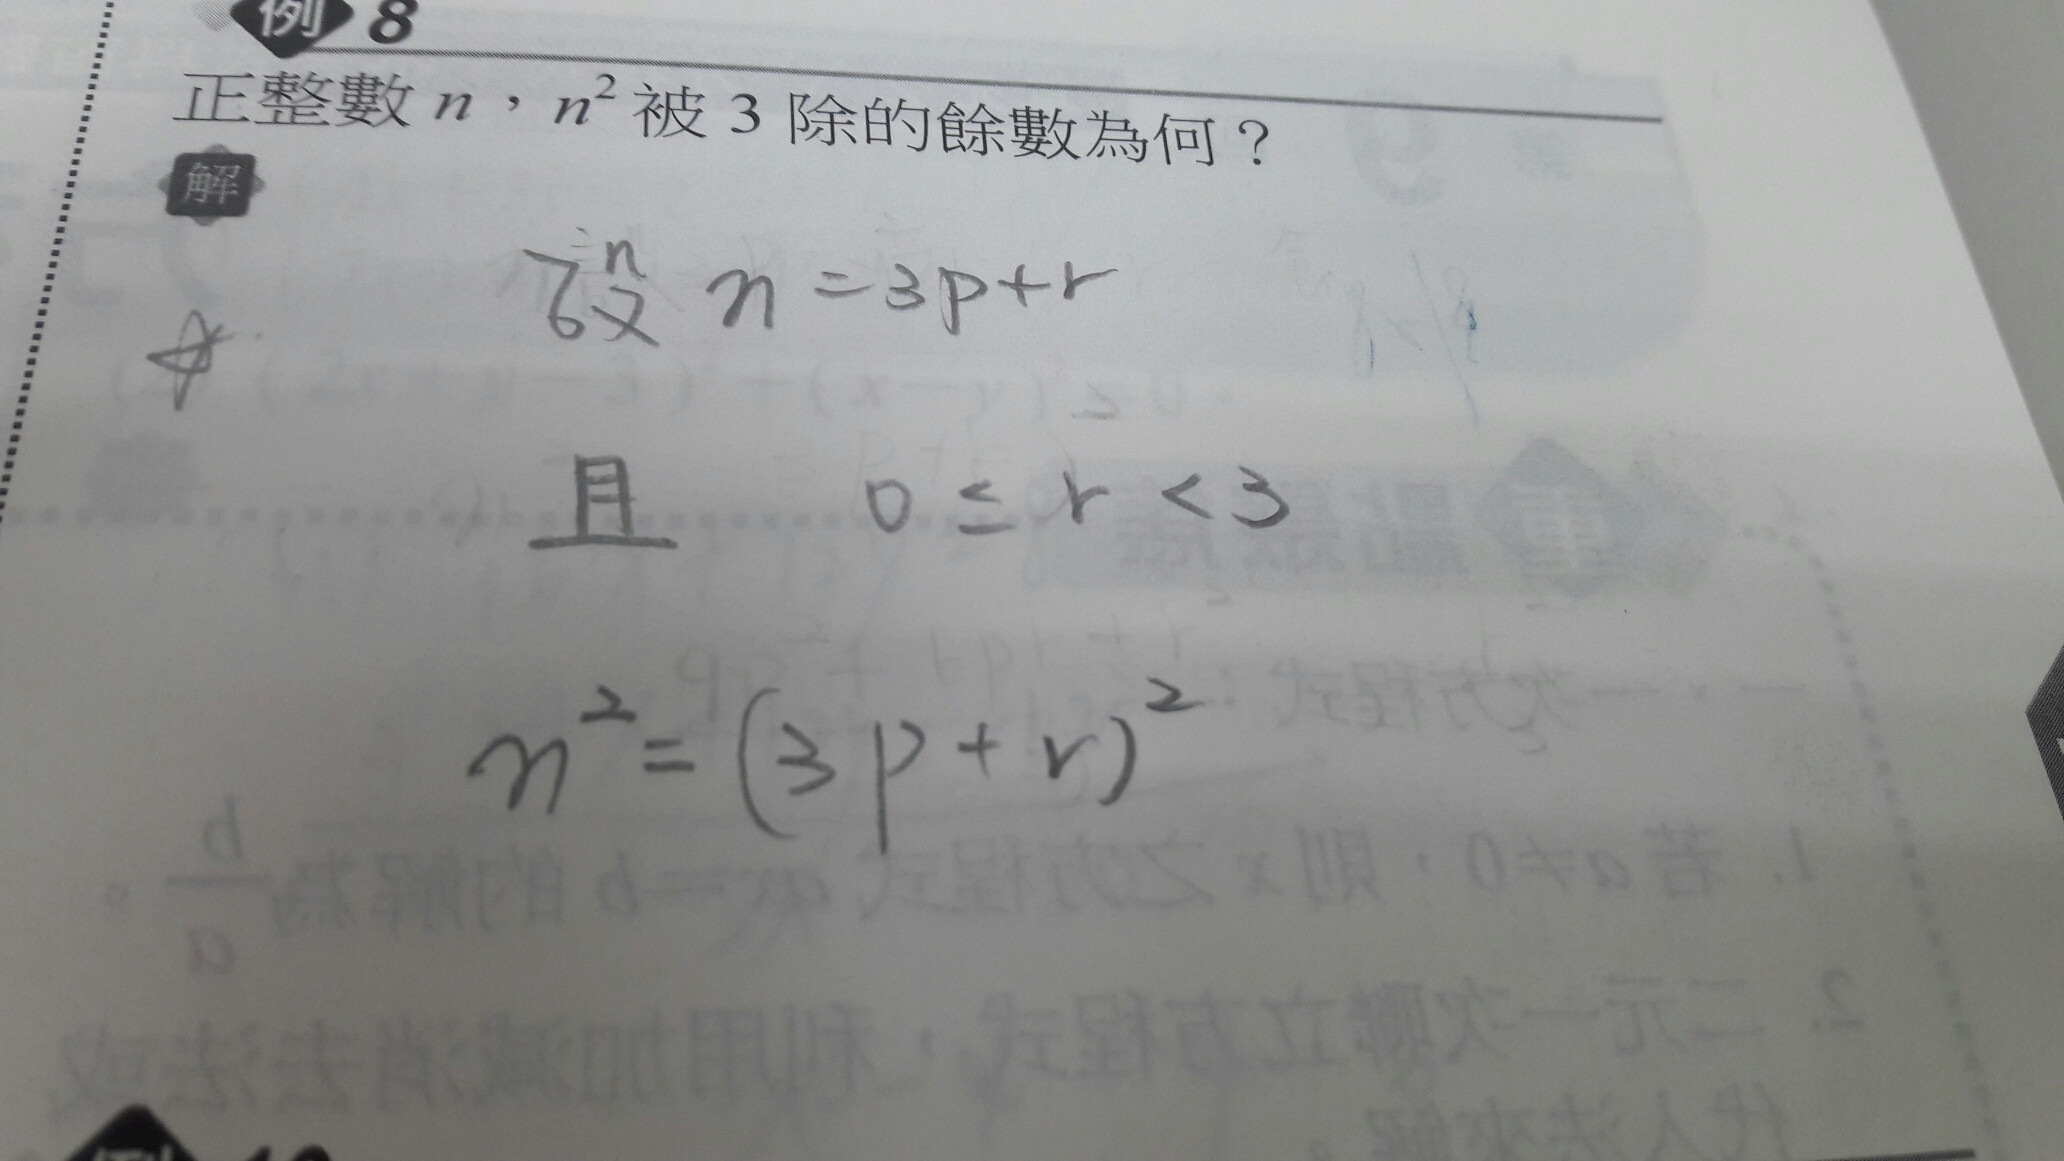 例 8
正整數 n，n² 被 3 除的餘數為何？
解
設 n n = 3p+r
且 0 ≤ r < 3
n² = (3p+r)²